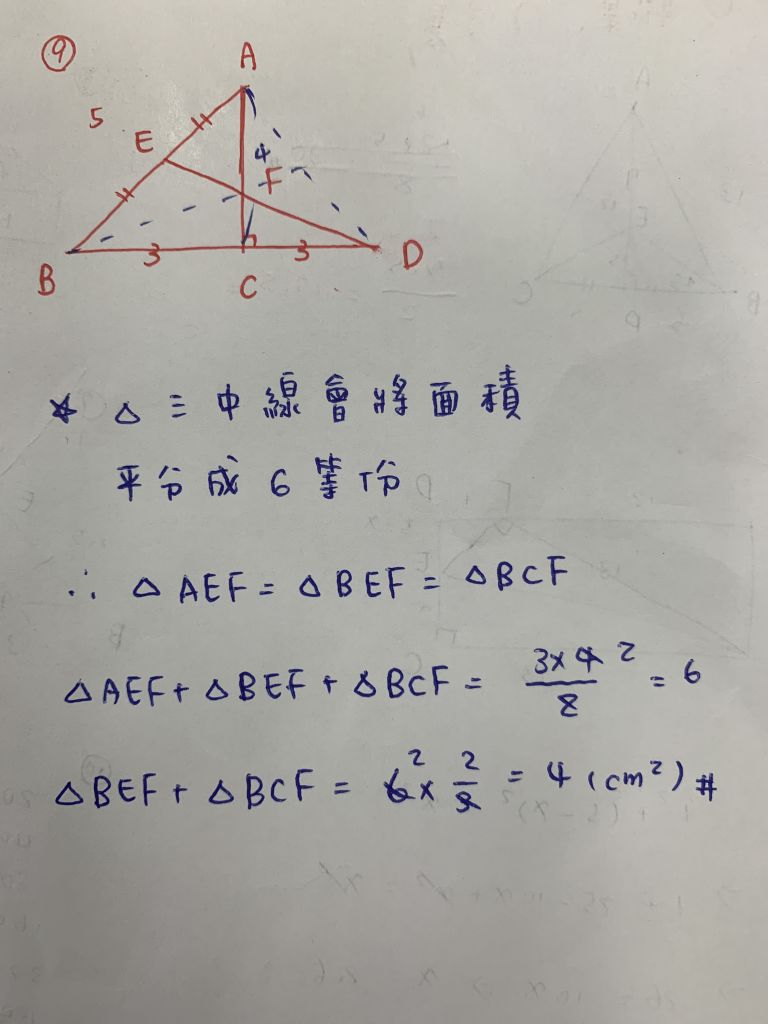 ⑨
A
5
E
4
F
B
3
C
3
D
* △三中線會將面積
平分成6等份
∴ △AEF = △BEF = △BCF
△AEF + △BEF + △BCF = 3×4/2 2 = 6
△BEF + △BCF = 6 2 × 2/3 = 4 (cm²) #